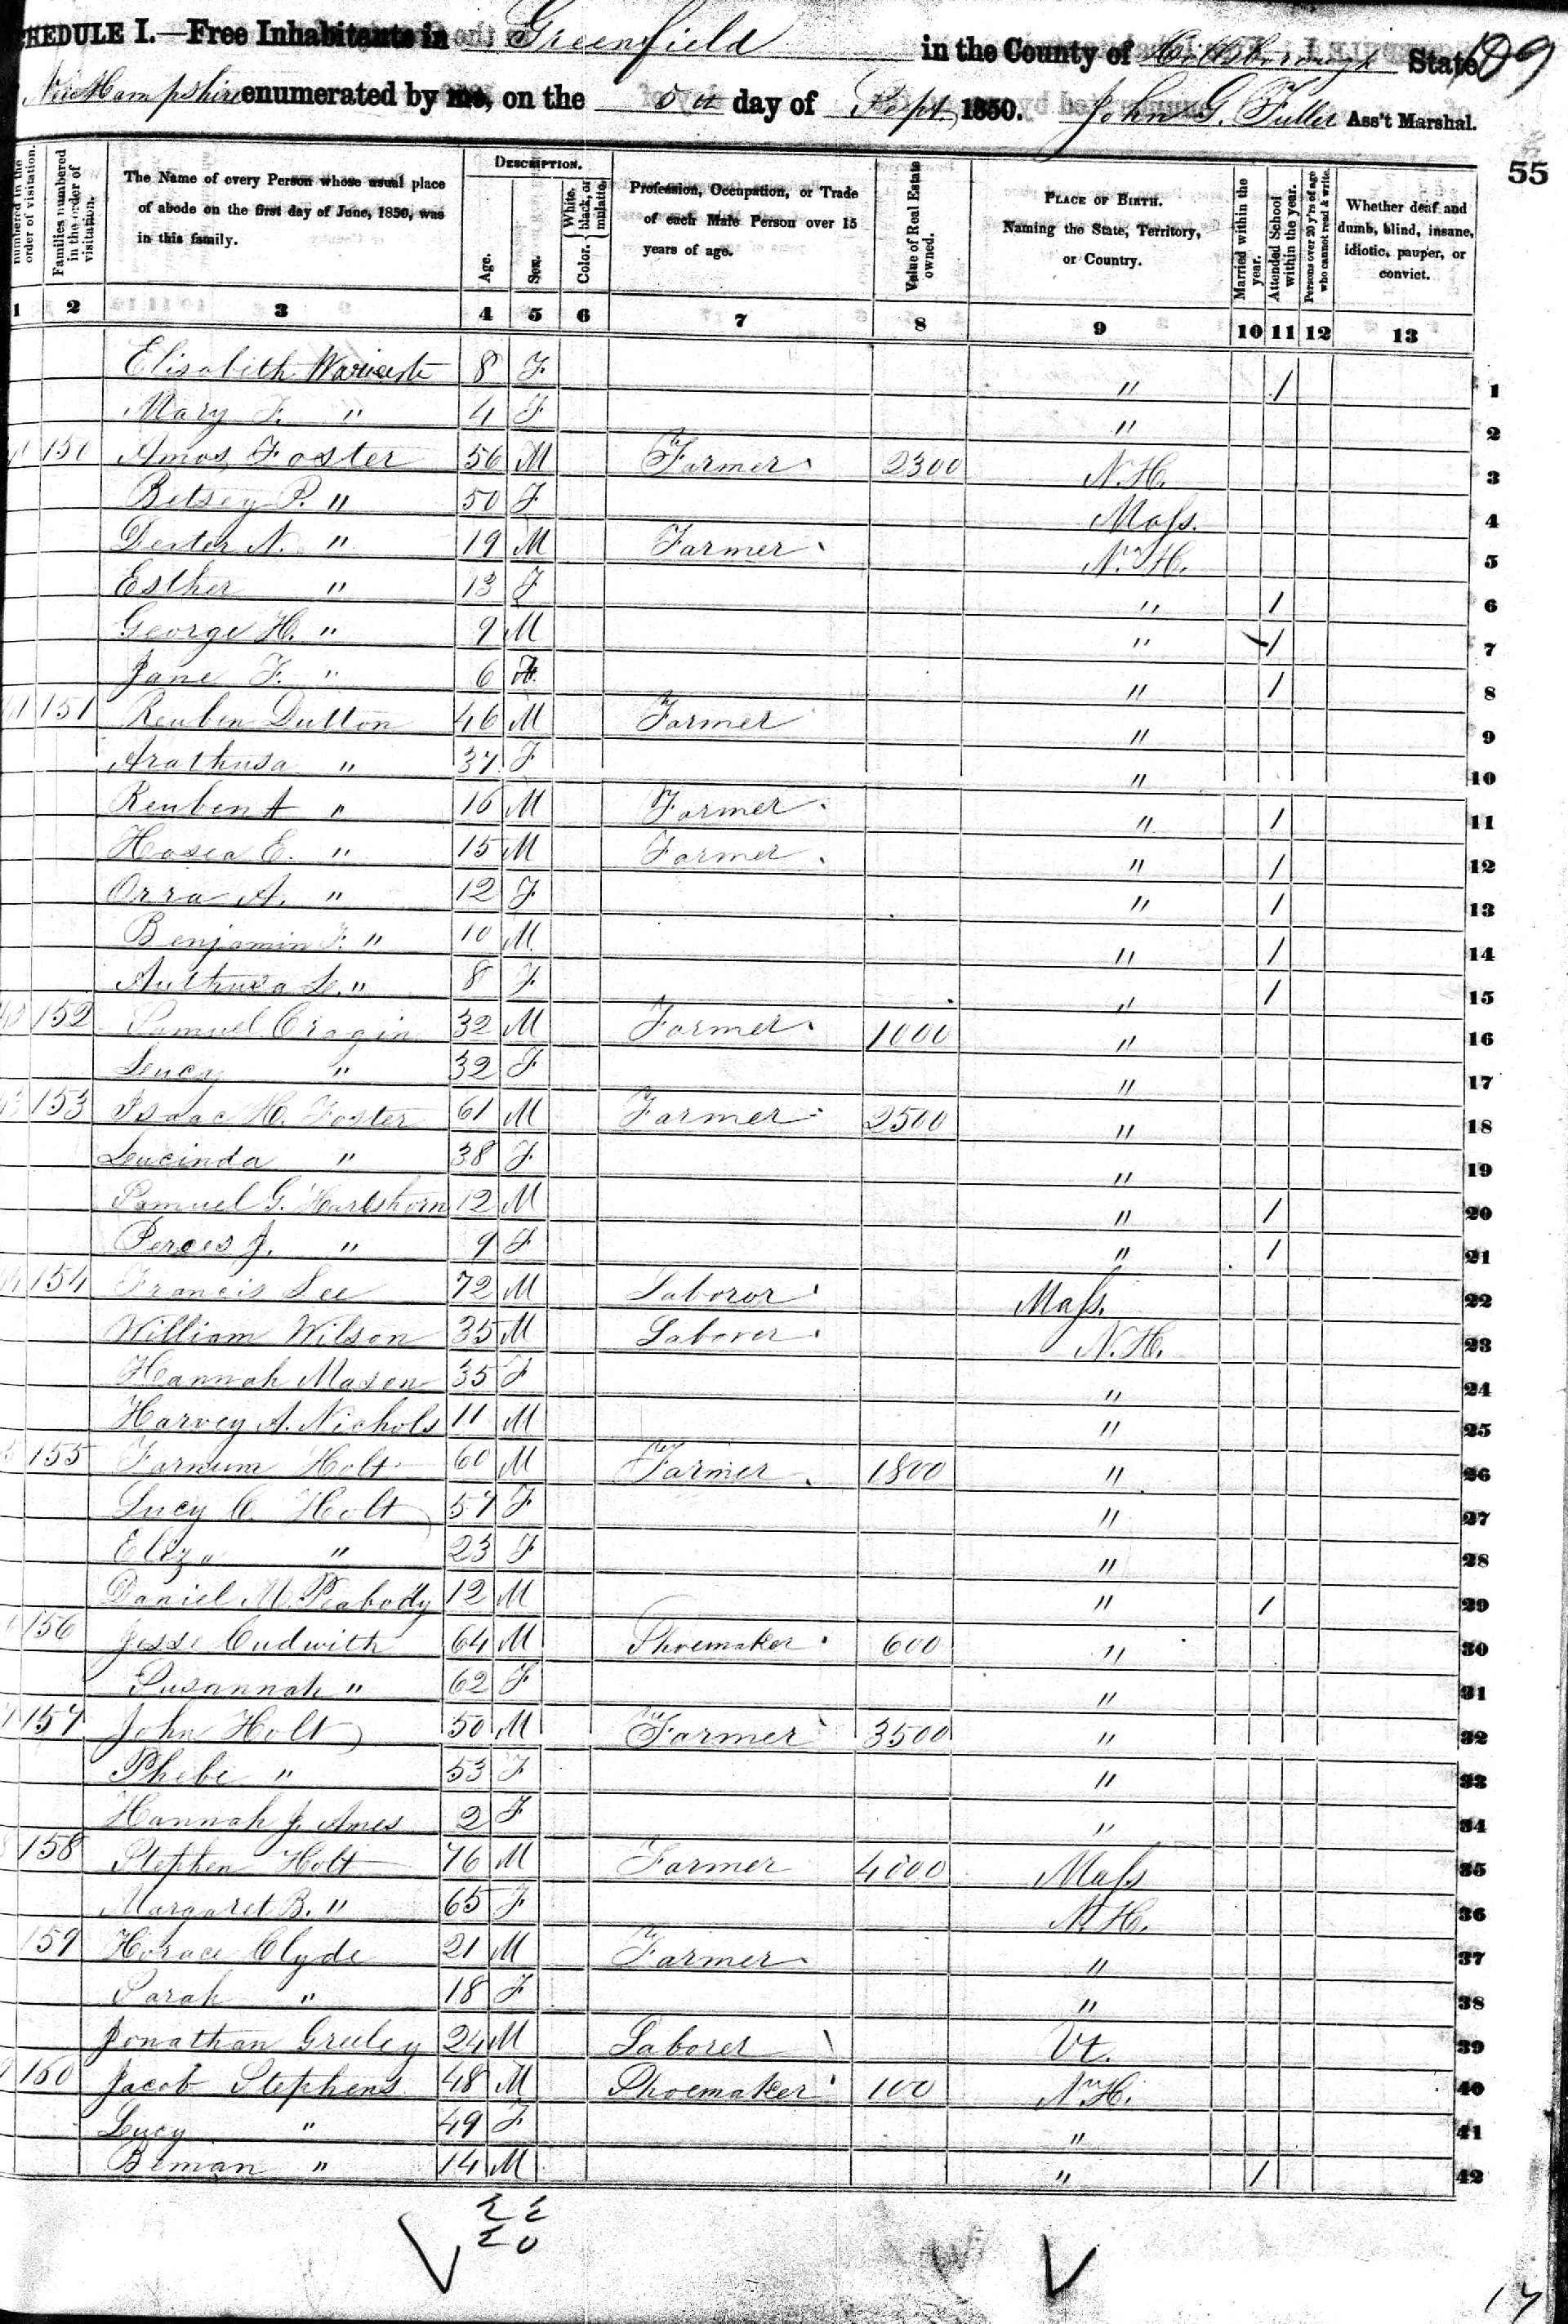 SCHEDULE I.—Free Inhabitants in Greenfield in the County of Hillsborough State
New Hampshire enumerated by me, on the 5th day of Sept 1850. John G. Fuller Ass't Marshal.
109
55
numbered in the order of visitation.
Families numbered in the order of visitation.
The Name of every Person whose usual place of abode on the first day of June, 1850, was in this family.
DESCRIPTION.
Age.
Sex.
Color. White, black, or mulatto.
Profession, Occupation, or Trade of each Male Person over 15 years of age.
Value of Real Estate owned.
PLACE OF BIRTH. Naming the State, Territory, or Country.
Married within the year.
Attended School within the year.
Persons over 20 y'rs of age who cannot read & write.
Whether deaf and dumb, blind, insane, idiotic, pauper, or convict.
1 2 3 4 5 6 7 8 9 10 11 12 13
Elisabith 8 F " / 1
Mary F. " 4 F " 2
150 Amos Foster 56 M Farmer 2300 N.H. 3
Betsey P. " 50 F Mass. 4
Dexter N. " 19 M Farmer N.H. 5
Esther " 13 F " / 6
George H. " 9 M " / 7
Jane F. " 6 F " / 8
151 Reuben Dutton 46 M Farmer " 9
Arathusa " 37 F " 10
Reuben A " 16 M Farmer " / 11
Hosea E. " 15 M Farmer " / 12
Orra A. " 12 F " / 13
Benjamin F. " 10 M " / 14
" 8 F " / 15
152 Samuel Cragin 32 M Farmer 1000 " 16
Lucy " 32 F " 17
153 Isaac H. Foster 61 M Farmer 2500 " 18
Lucinda " 38 F " 19
Samuel G. Hartshorn 12 M " / 20
Perces J. " 9 F " / 21
154 Francis Lee 72 M Laboror Mass. 22
William Wilson 35 M Laborer N.H. 23
Hannah Mason 35 F " 24
Harvey A. Nichols 11 M " 25
155 Farnum Holt 60 M Farmer 1800 " 26
Lucy C. Holt 57 F " 27
Eliza " 23 F " 28
Daniel M. Peabody 12 M " / 29
156 Jesse Cudwith 64 M Shoemaker 600 " 30
Susannah " 62 F " 31
157 John Holt 50 M Farmer 3500 " 32
Phebe " 53 F " 33
Hannah J. Ames 2 F " 34
158 Stephen Holt 76 M Farmer 4000 Mass 35
Margaret B. " 65 F N.H. 36
159 Horace Clyde 21 M Farmer " 37
Sarah " 18 F " 38
Jonathan Greeley 24 M Laborer Vt. 39
160 Jacob Stephens 48 M Shoemaker 100 N.H. 40
Lucy " 49 F " 41
Beman " 14 M " / 42